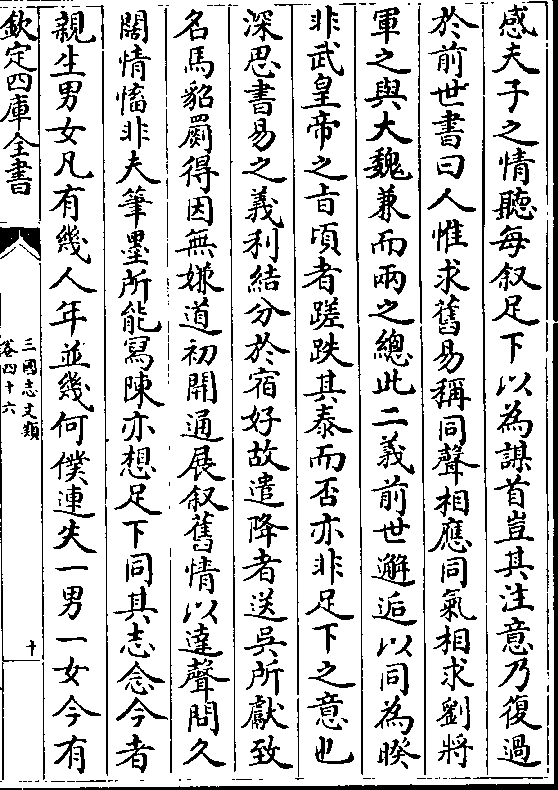 感夫子之情聽每叙足下以為謀首豈其注意乃復過
於前世書曰人惟求舊易稱同聲相應同氣相求劉將
軍之與大魏兼而兩之總此二義前世邂逅以同為暌
非武皇帝之㫖頃者蹉跌其泰而否亦非足下之意也
深思書易之義利結分於宿好故遣降者送吳所獻致
名馬貂罽得因無嫌道初開通展叙舊情以達聲問久
闊情慉非夫筆墨所能冩陳亦想足下同其志念今者
親生男女凡有幾人年並幾何僕連失一男一女今有
欽定四庫全書
三國志文類
卷四十六
十